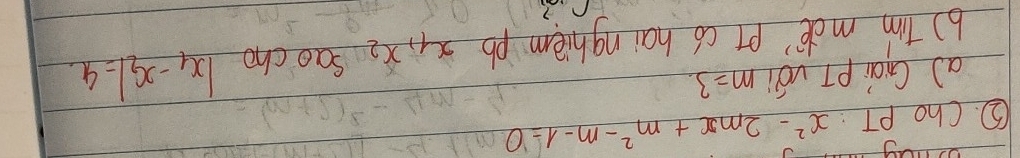 ② Cho PT : x² - 2mx + m² - m - 1 = 0
a) Giải PT với m = 3.
b) Tìm m để PT có hai nghiệm pb x₁, x₂ sao cho |x₁ - x₂| = 4.